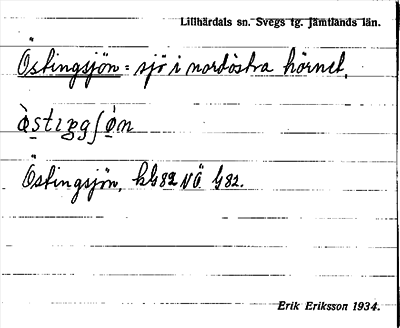 Lillhärdals sn. Svegs tg. Jämtlands län.
Östingsjön = sjö i nordöstra hörnet.
Östingsjön, kG 82 NÖ G 82.
Erik Eriksson 1934.